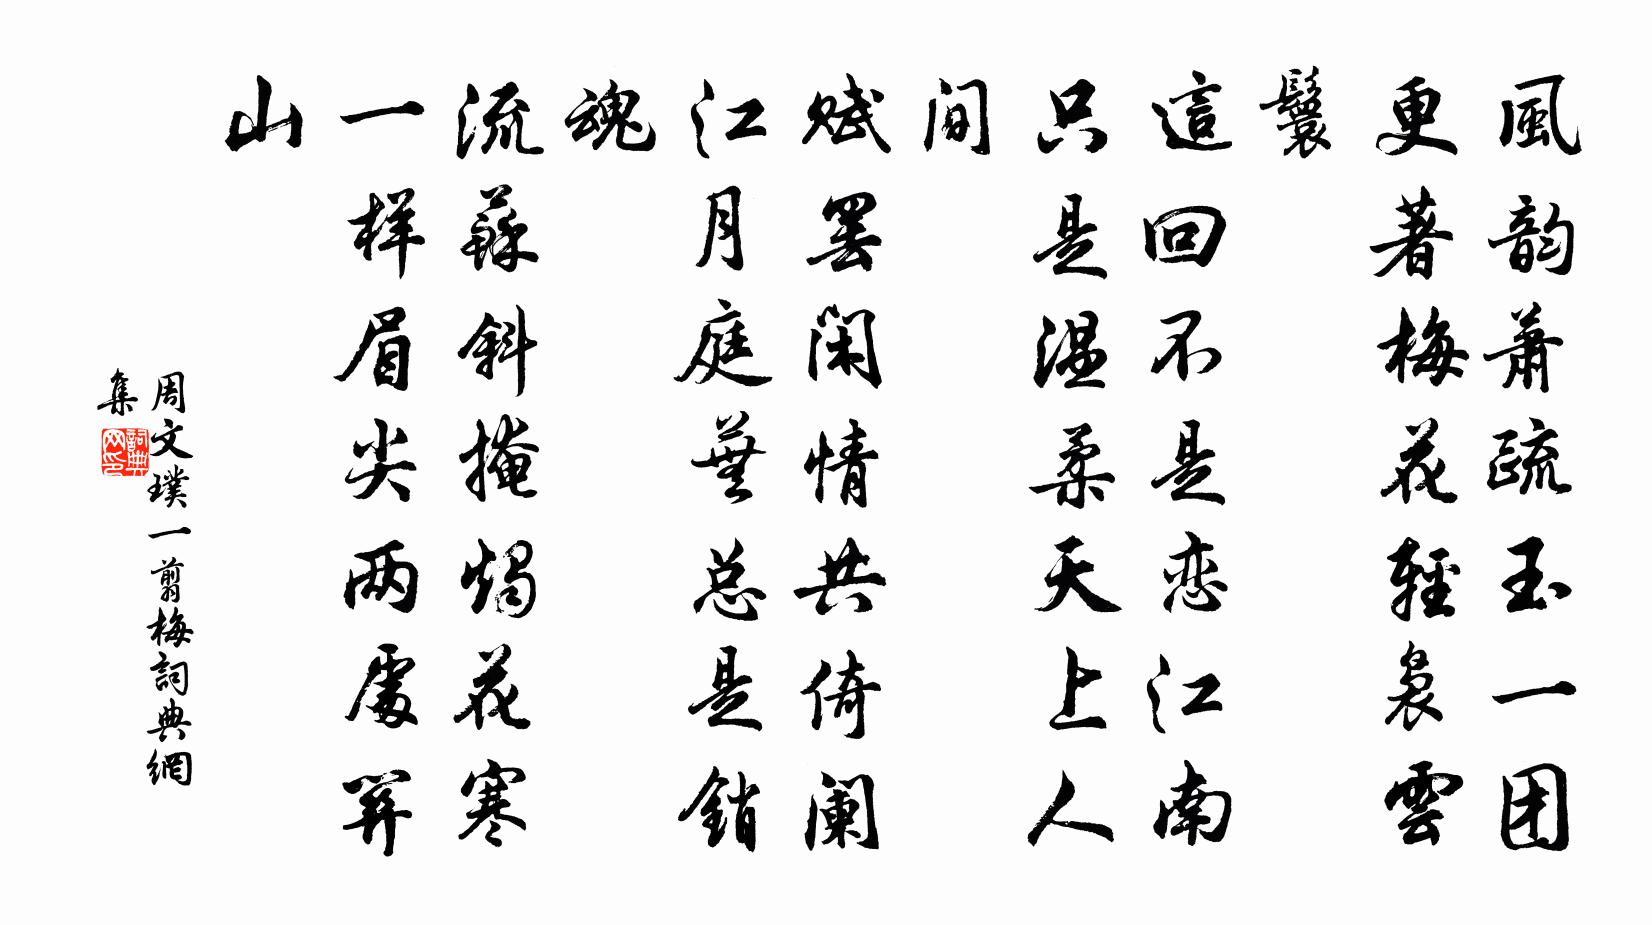 風韵蕭疏玉一团
更著梅花輕裊雲
鬟
這回不是恋江南
只是温柔天上人
间
赋罢闲情共倚阑
江月庭蕪总是銷
魂
流蘇斜掩燭花寒
一样眉尖两處関
山
周文璞一剪梅詞典網
集
詞典网印